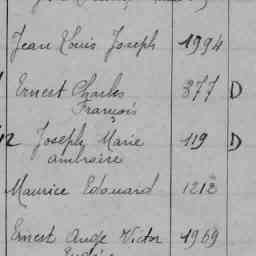 Jean Louis Joseph 1994
Ernest Charles 377 D
François
12 Joseph Marie 119 D
ambroise
Maurice Edouard 1213
Ernest Ange Victor 1969